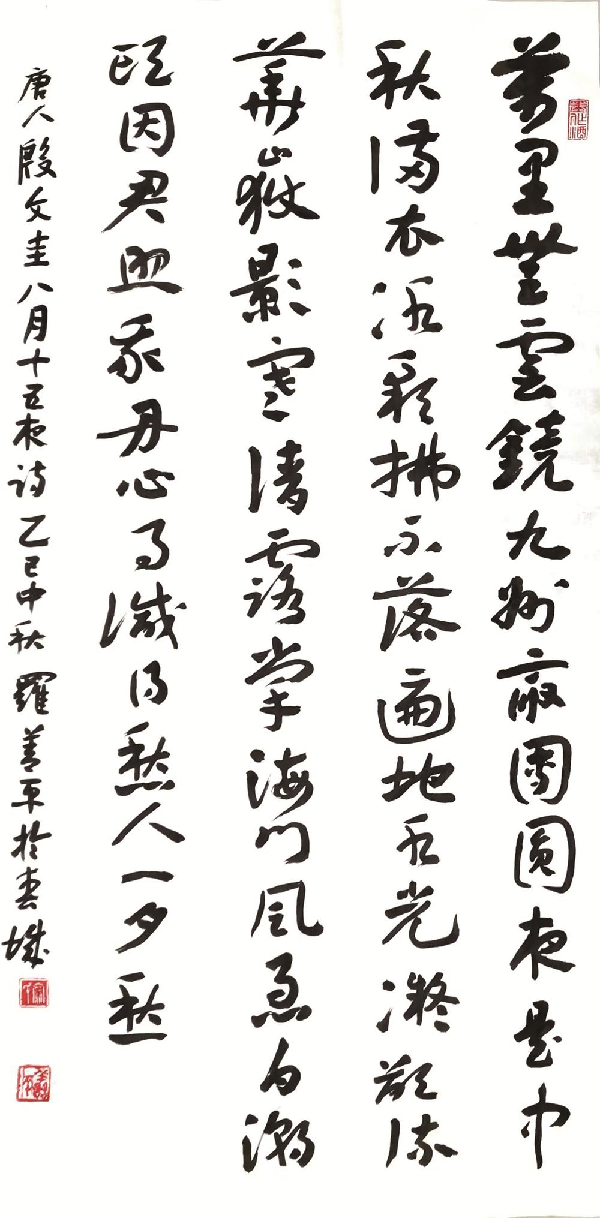 萬里無雲鏡九州最團圓夜是中
秋滿衣冰彩拂不落遍地水光凝欲流
華嶽影寒清露掌海門風急白潮
頭因君照我丹心事減得愁人一夕愁
唐人殷文圭八月十五夜诗 乙巳中秋 羅善平於春城